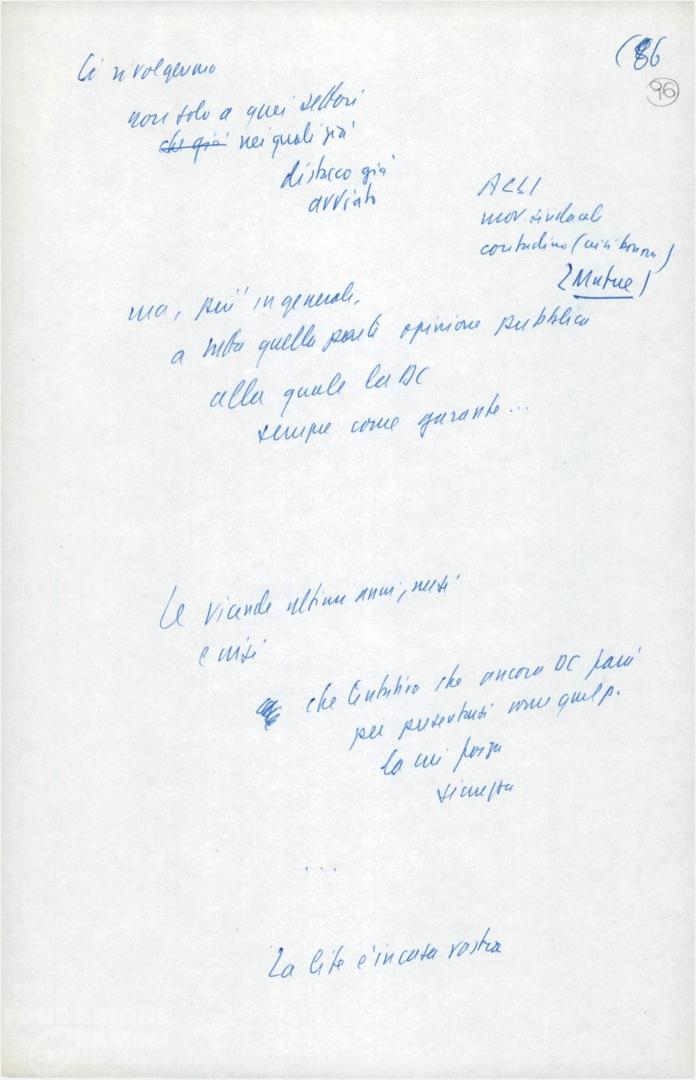 (86
96
Ci rivolgeremo
non solo a quei settori
che già nei quali già
distacco già
avviato
ACLI
mov. sindacale
contadino (
(Mutue)
ma, più in generale,
a tutta quella parte opinione pubblica
alla quale la DC
sempre come garante...
Le vicende ultimi anni, mesi
e crisi
che tentativo che ancora DC farà
per presentarsi come quel p.
la cui forza
sicurezza
...
La lite è in casa vostra
FONDAZIONE